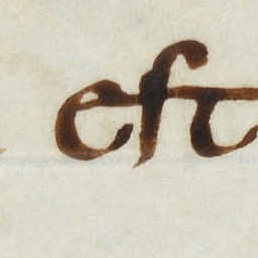 eſt